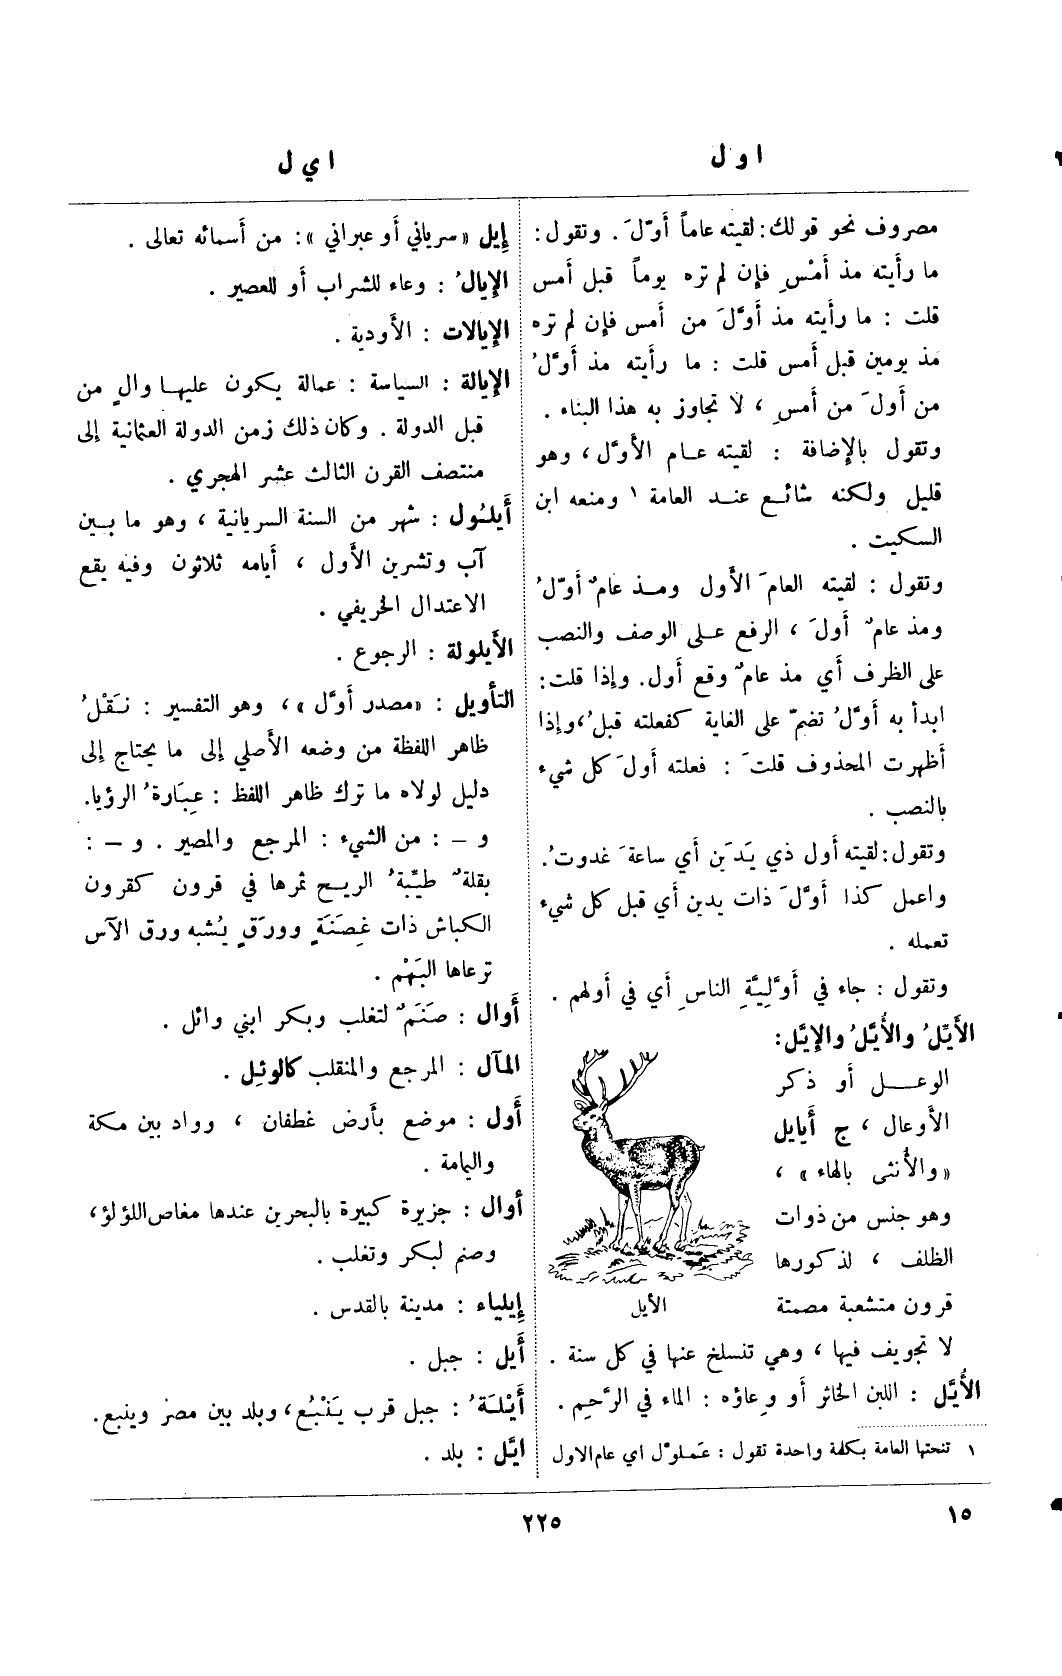 اول
ايل
مصروف نحو قولك: لقيته عاماً أوّلَ. وتقول:
ما رأيته مذ أمْسِ فإن لم تره يوماً قبل أمس
قلت : ما رأيته مذ أوَّلَ من أمس فإن لم تره
مذ يومين قبل أمس قلت : ما رأيته مذ أوَّلُ
من أولَ من أمسِ ، لا تجاوز به هذا البناء .
وتقول بالإضافة : لقيته عام الأوَّل ، وهو
قليل ولكنه شائع عند العامة ١ ومنعه ابن
السكيت .
وتقول : لقيته العامَ الأول ومذ عامٌ أوّلُ
ومذ عامٌ أولَ ، الرفع على الوصف والنصب
على الظرف أي مذ عامٌ وقع أول. وإذا قلت:
ابدأ به أوَّلُ تضمّ على الغاية كفعلته قبلُ، وإذا
أظهرت المحذوف قلتَ : فعلته أولَ كل شيء
بالنصب .
وتقول: لقيته أول ذي يَدَين أي ساعةَ غدوتُ.
واعمل كذا أوَّلَ ذات يدين أي قبل كل شيء
تعمله .
وتقول : جاء في أوَّلِيَّةِ الناسِ أي في أولهم .
الأَيِّلُ والأُيَّلُ والإيَّل:
الوعل أو ذكر
الأوعال ، ج أيايل
«والأُنثى بالهاء» ،
وهو جنس من ذوات
الظلف ، لذكورها
قرون متشعبة مصمتة
الأيل
لا تجويف فيها ، وهي تنسلخ عنها في كل سنة .
الأُيَّل : اللبن الخاثر أو وعاؤه : الماء في الرَّحِم .
١ تنحتها العامة بكلمة واحدة تقول : عَملوَّل اي عام الاول
إيل «سرياني أو عبراني»: من أسمائه تعالى .
الإيالُ : وعاء للشراب أو للعصير .
الإيالات : الأودية .
الإيالة : السياسة : عمالة يكون عليها والٍ من
قبل الدولة . وكان ذلك زمن الدولة العثمانية إلى
منتصف القرن الثالث عشر الهجري .
أَيلول : شهر من السنة السريانية ، وهو ما بين
آب وتشرين الأول ، أيامه ثلاثون وفيه يقع
الاعتدال الخريفي .
الأيلولة : الرجوع .
التأويل : «مصدر أوَّل» ، وهو التفسير : نَقْلُ
ظاهر اللفظة من وضعه الأصلي إلى ما يحتاج إلى
دليل لولاه ما ترك ظاهر اللفظ : عِبَارةُ الرؤيا.
و – : من الشيء : المرجع والمصير . و – :
بقلةٌ طيِّبةُ الريح ثمرها في قرون كقرون
الكباش ذات غِصَنَةٍ وورَقٍ يُشبه ورق الآس
ترعاها البَهْم .
أَوال : صَنَمٌ لتغلب وبكر ابني وائل .
المآل : المرجع والمنقلب كالوئِل .
أَول : موضع بأرض غطفان ، وواد بين مكة
واليامة .
أوال : جزيرة كبيرة بالبحرين عندها مغاص اللؤلؤ ،
وصنم لبكر وتغلب .
إيلياء : مدينة بالقدس .
أَيل : جبل .
أَيْلَةُ : جبل قرب يَنْبُع ، وبلد بين مصر وينبع.
ايَّل : بلد .
١٥
٢٢٥